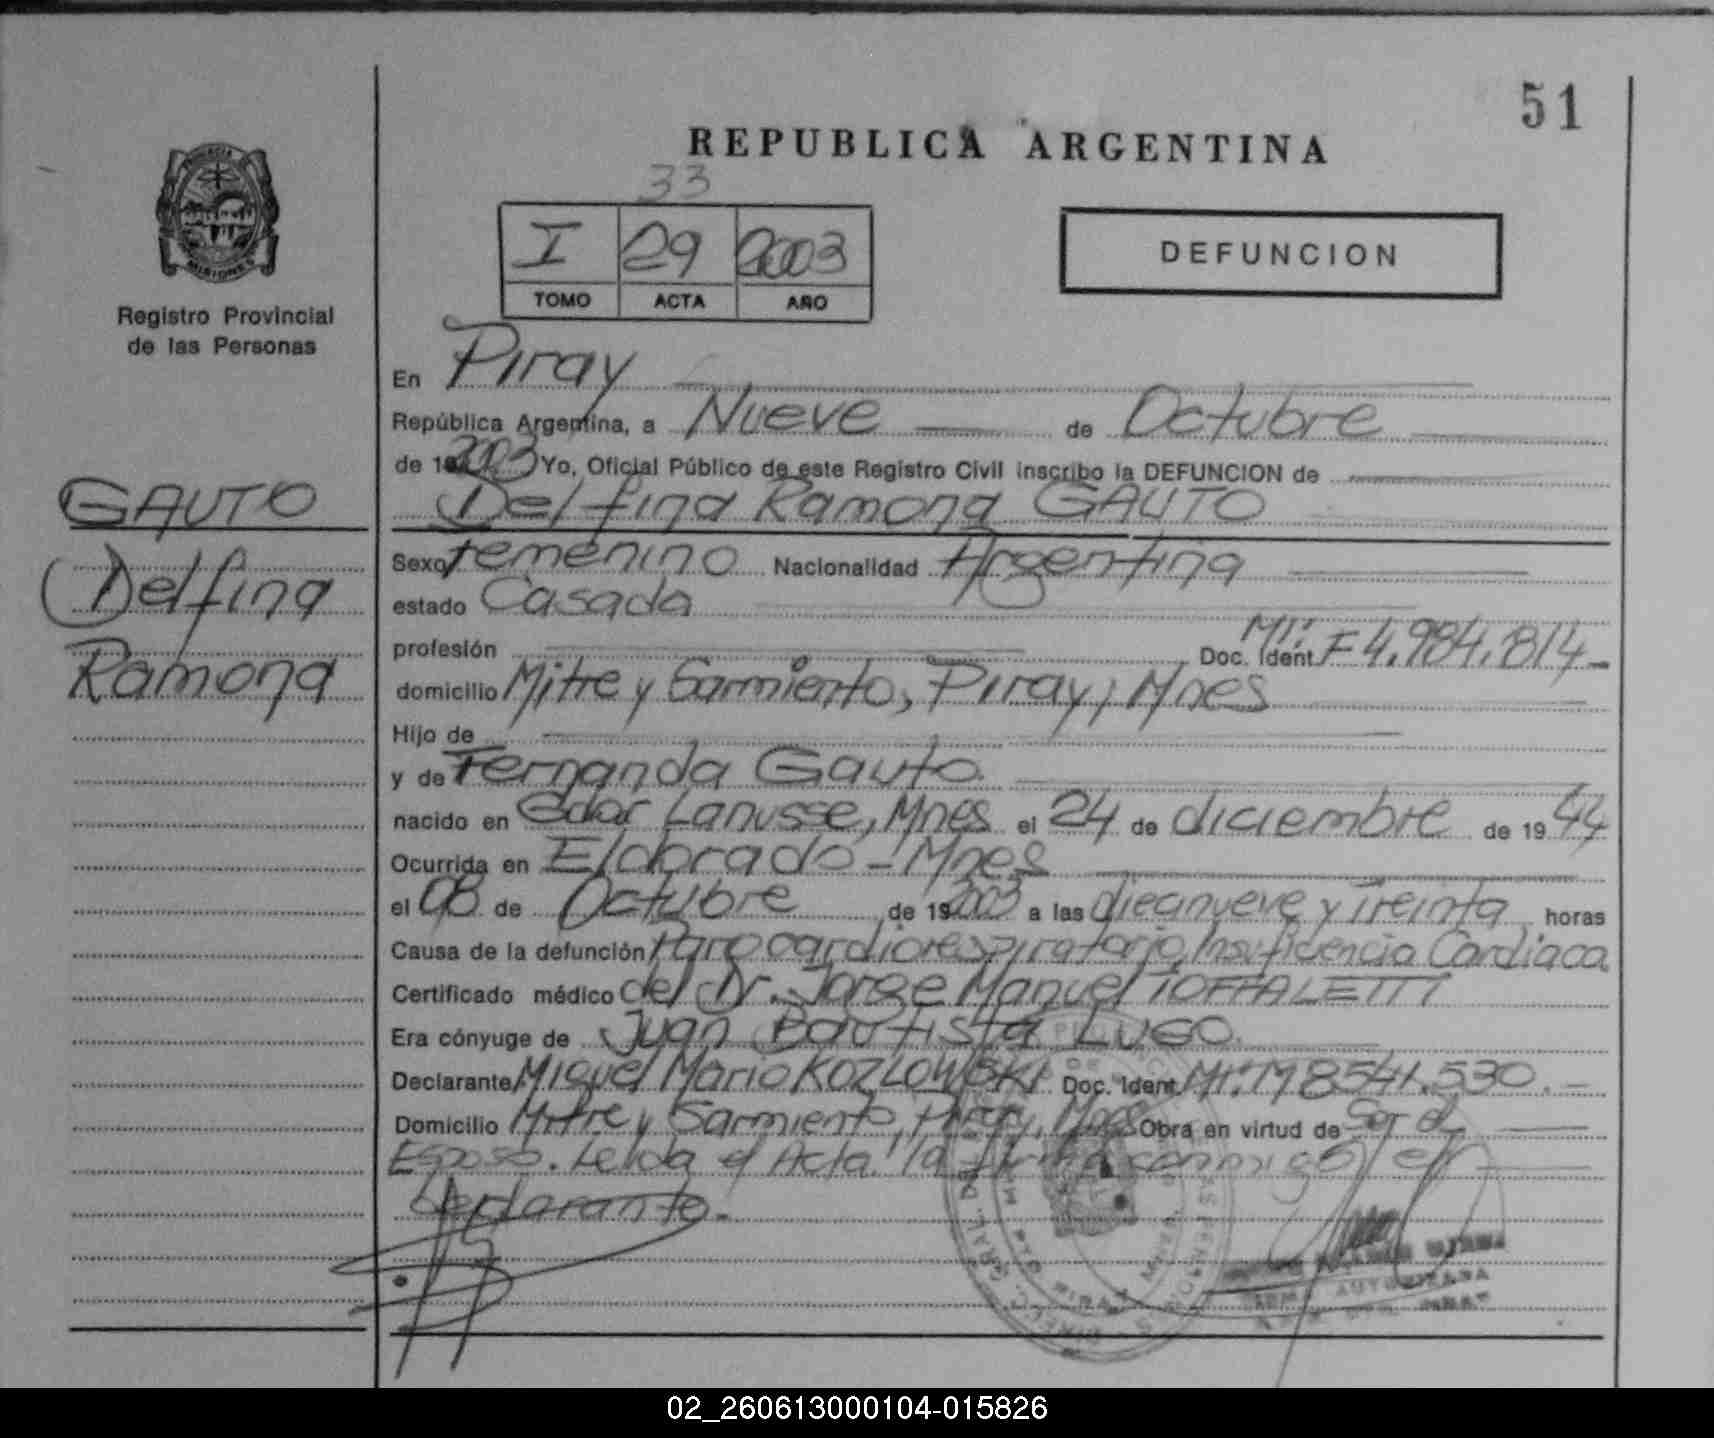 51
REPUBLICA ARGENTINA
33
I 29 2003
TOMO ACTA AÑO
DEFUNCION
PROVINCIA DE
MISIONES
Registro Provincial
de las Personas
GAUTO
Delfina
Ramona
En Piray
República Argentina, a Nueve de Octubre
de 2003 Yo, Oficial Público de este Registro Civil inscribo la DEFUNCION de
Delfina Ramona GAUTO
Sexo femenino Nacionalidad Argentina
estado Casada
profesión Doc. Ident. MI: F 4.984.814
domicilio Mitre y Sarmiento, Piray, Mnes
Hijo de
y de Fernanda Gauto.
nacido en Gdor Lanusse, Mnes el 24 de diciembre de 1944
Ocurrida en Eldorado - Mnes
el 08 de Octubre de 2003 a las diecinueve y Treinta horas
Causa de la defunción Paro cardiorespiratorio, Insuficencia Cardiaca
Certificado médico del Dr. Jorge Manuel TOFFALETTI
Era cónyuge de Juan Bautista LUGO.
Declarante Miguel Mario KOZLOWSKI Doc. Ident. MI: M 8541.530.
Domicilio Mitre y Sarmiento, Piray, Mnes Obra en virtud de Ser el
Esposo. Leida el Acta la firma conmigo el
Declarante.
FIRMA AUTORIZADA
02_260613000104-015826